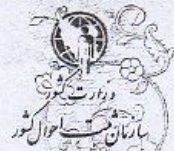 وزارت کشور
سازمان ثبت احوال کشور